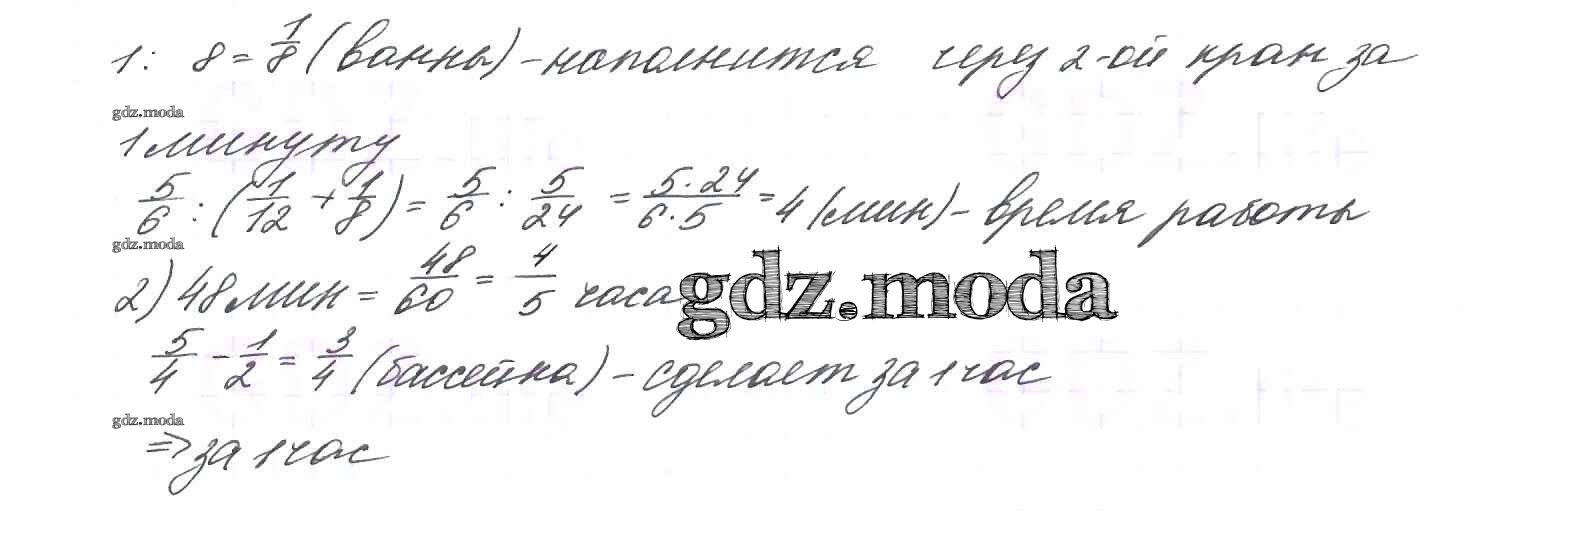 1 : 8 = 1/8 (ванны) - наполнится через 2-ой кран за
gdz.moda
1 минуту
5/6 : (1/12 + 1/8) = 5/6 : 5/24 = 5·24/6·5 = 4 (мин) - время работы
gdz.moda
2) 48 мин = 48/60 = 4/5 часа
gdz.moda
5/4 - 1/2 = 3/4 (бассейна) - сделает за 1 час
gdz.moda
=> за 1 час